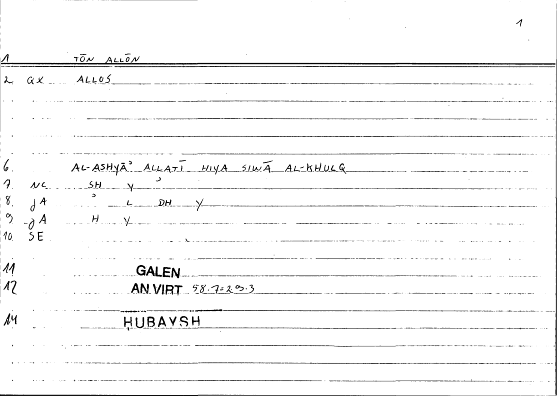 1
1 TŌN ALLŌN
2. QX ALLOS
6. AL-ASHYĀʾ ALLATĪ HIYA SIWĀ AL-KHULQ
7. NC SH Y ʾ
8. JA ʾ L DH Y
9 JA H Y
10. SE
11 GALEN
12 AN.VIRT 58.7=29.3
14 ḤUBAYSH